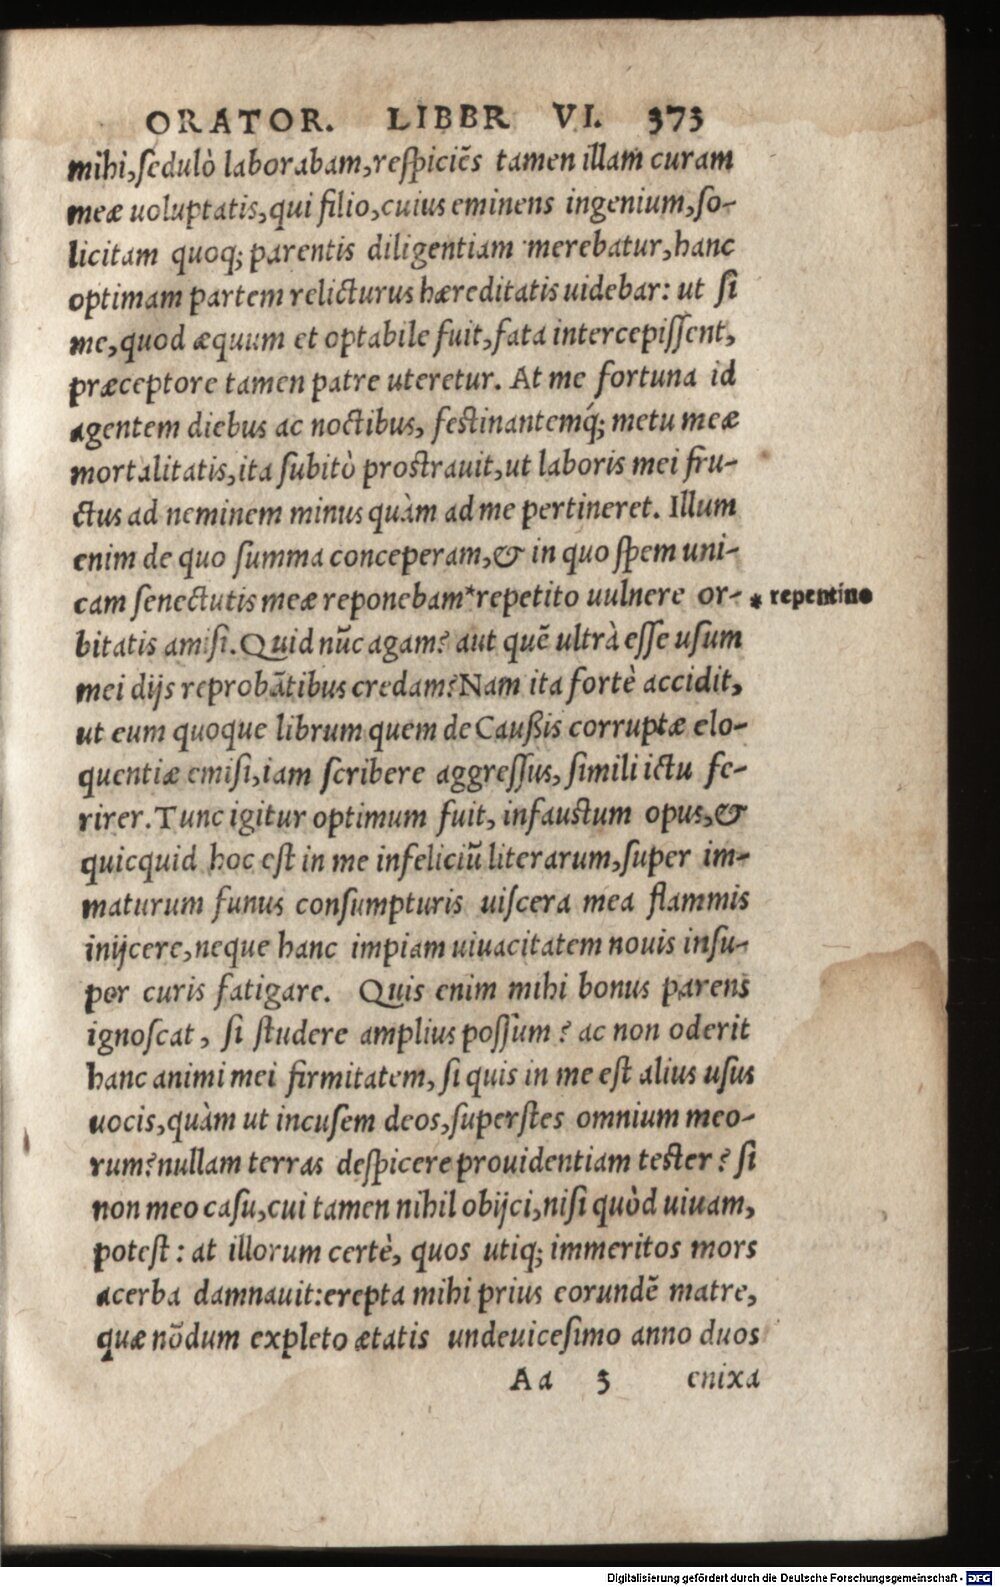 ORATOR. LIBER VI. 373
mihi,sedulò laborabam,respiciẽs tamen illam curam
meæ uoluptatis,qui filio,cuius eminens ingenium,so-
licitam quoq; parentis diligentiam merebatur,hanc
optimam partem relicturus hæreditatis uidebar: ut si
me,quod æquum et optabile fuit,fata intercepissent,
præceptore tamen patre uteretur. At me fortuna id
agentem diebus ac noctibus, festinantemq́; metu meæ
mortalitatis,ita subitò prostrauit,ut laboris mei fru-
ctus ad neminem minus quàm ad me pertineret. Illum
enim de quo summa conceperam,& in quo spem uni-
cam senectutis meæ reponebam*repetito uulnere or- * repentino
bitatis amisi. Quid nũc agam? aut quẽ ultrà esse usum
mei dijs reprobãtibus credam? Nam ita fortè accidit,
ut eum quoque librum quem de Caußis corruptæ elo-
quentiæ emisi,iam scribere aggressus, simili ictu fe-
rirer. Tunc igitur optimum fuit, infaustum opus,&
quicquid hoc est in me infeliciũ literarum,super im-
maturum funus consumpturis uiscera mea flammis
inijcere,neque hanc impiam uiuacitatem nouis insu-
per curis fatigare. Quis enim mihi bonus parens
ignoscat, si studere amplius possum? ac non oderit
hanc animi mei firmitatem, si quis in me est alius usus
uocis,quàm ut incusem deos,superstes omnium meo-
rum? nullam terras despicere prouidentiam tester? si
non meo casu,cui tamen nihil obijci,nisi quòd uiuam,
potest: at illorum certè, quos utiq; immeritos mors
acerba damnauit:erepta mihi prius eorundẽ matre,
quæ nõdum expleto ætatis undeuicesimo anno duos
Aa 3 enixa
Digitalisierung gefördert durch die Deutsche Forschungsgemeinschaft - DFG